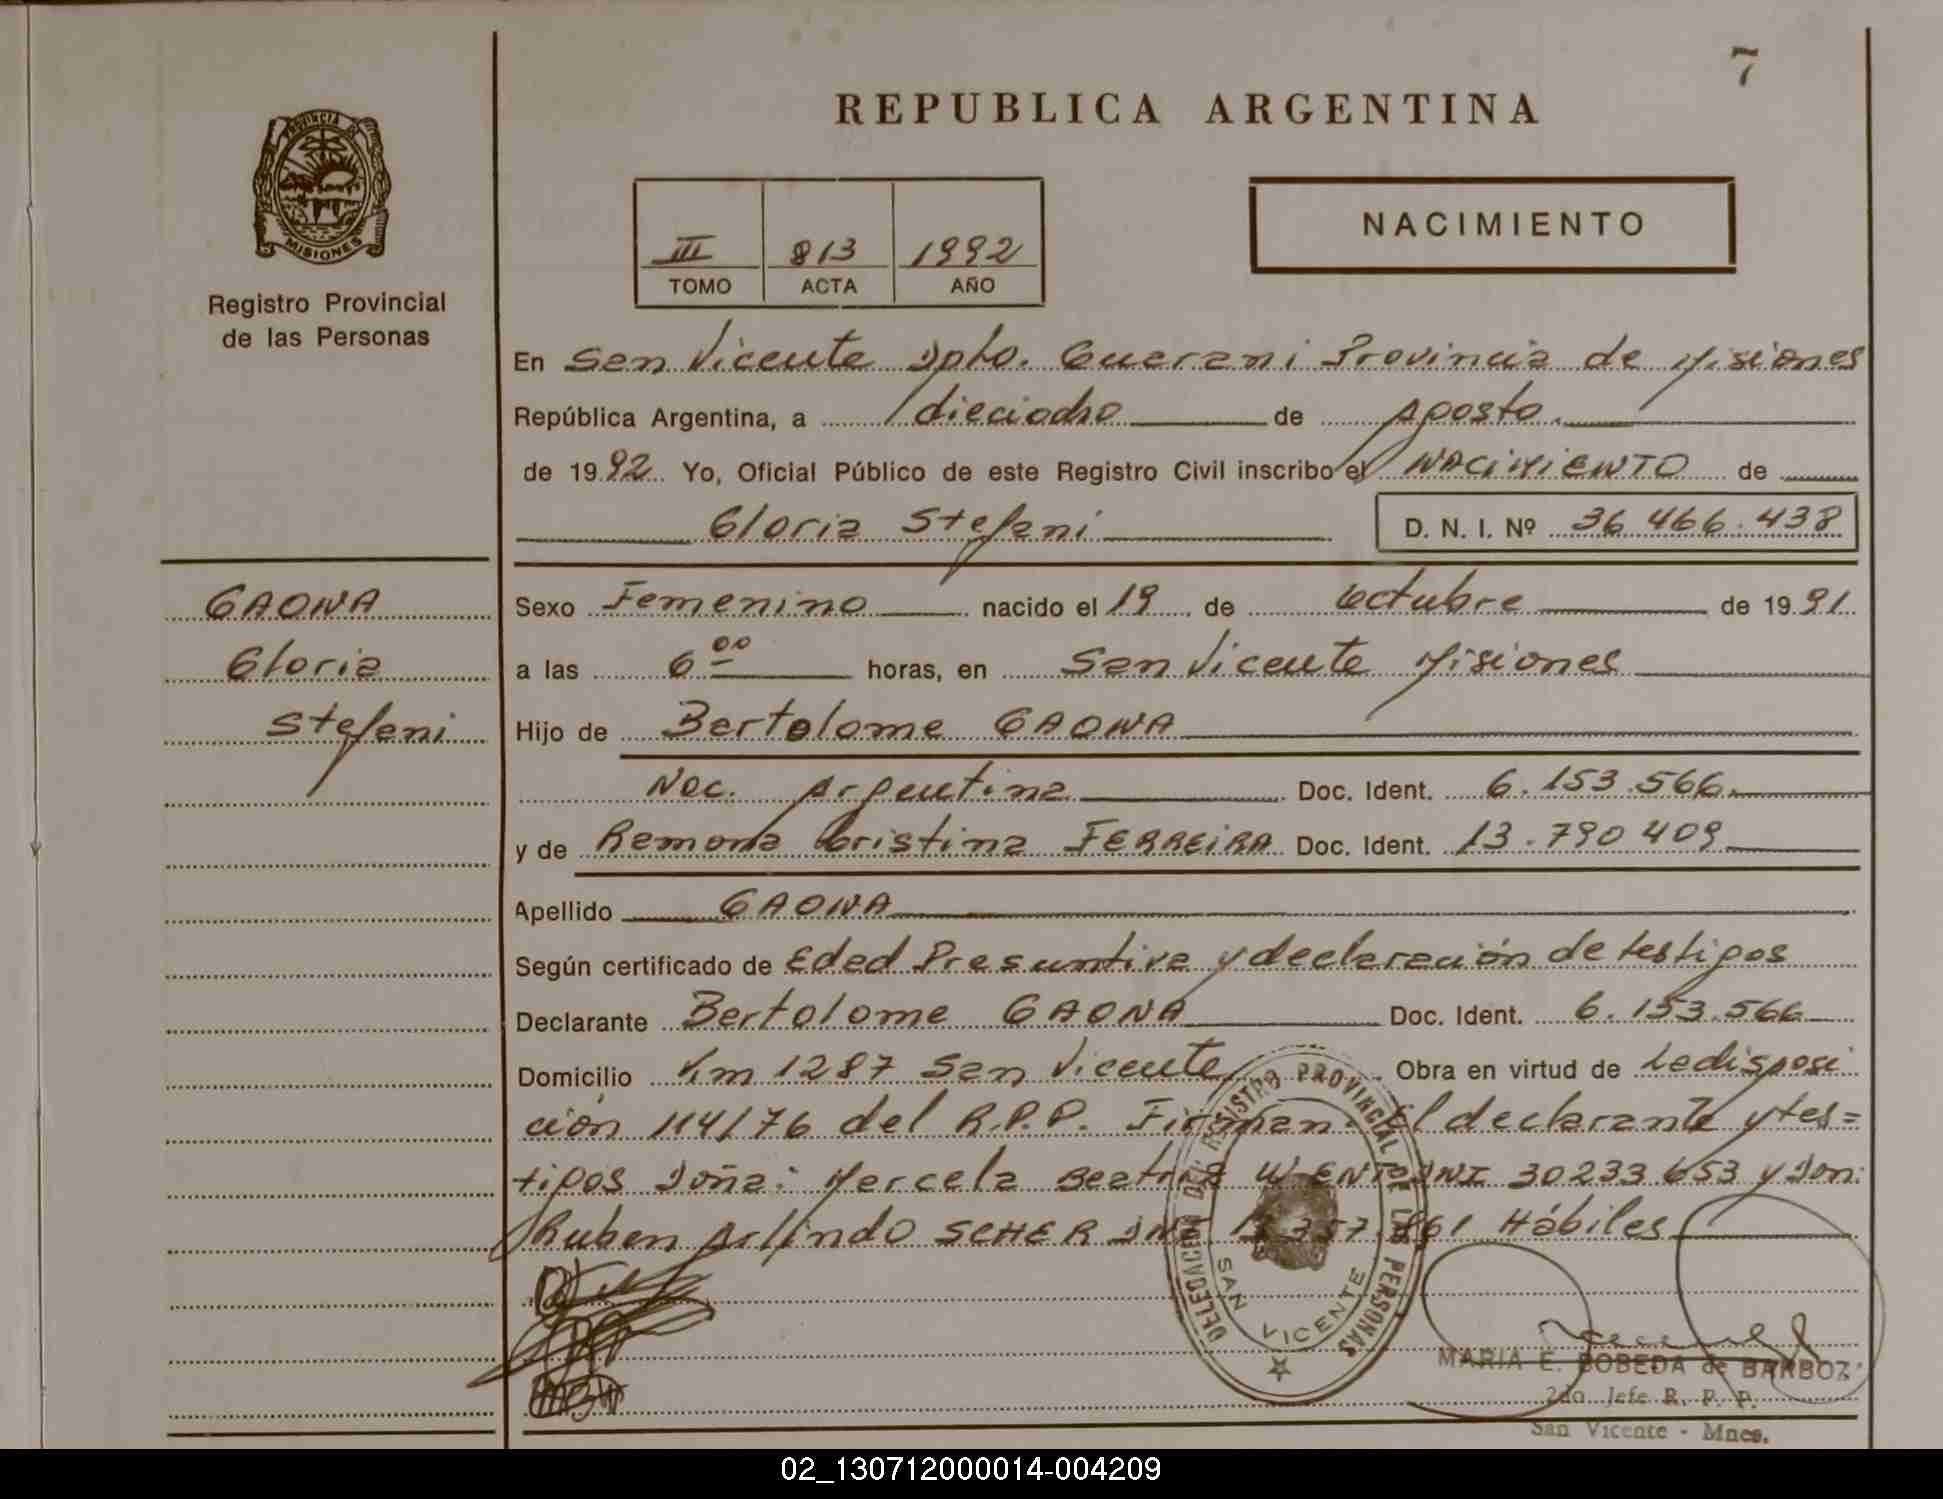 7
REPUBLICA ARGENTINA
PROVINCIA DE
MISIONES
Registro Provincial
de las Personas
III 813 1992
TOMO ACTA AÑO
NACIMIENTO
En San Vicente Dpto. Guarani Provincia de Misiones
República Argentina, a dieciocho de Agosto.
de 1992 Yo, Oficial Público de este Registro Civil inscribo el NACIMIENTO de
Gloria Stefani D. N. I. Nº 36.466.438
GAONA
Gloria
Stefani
Sexo Femenino nacido el 19 de Octubre de 1991
a las 6 00 horas, en San Vicente Misiones
Hijo de Bartolome GAONA
Nac. Argentina Doc. Ident. 6.153.566.
y de Ramona Cristina FERREIRA Doc. Ident. 13.790409
Apellido GAONA
Según certificado de Edad Presuntiva y declaración de testigos
Declarante Bartolome GAONA Doc. Ident. 6.153.566
Domicilio Km 1287 San Vicente Obra en virtud de La disposi
ción 114/76 del R.P.P. Firman: El declarante y tes=
tigos Doña: Marcela Beatriz W ENT DNI 30233.653 y Don:
Ruben Arlindo SCHER DNI 357.861 Hábiles
DELEGACION DEL REGISTRO PROVINCIAL DE LAS PERSONAS
SAN VICENTE
MARIA E. BOBEDA de BARBOZ
2do Jefe R. P. P.
San Vicente - Mnes.
02_130712000014-004209